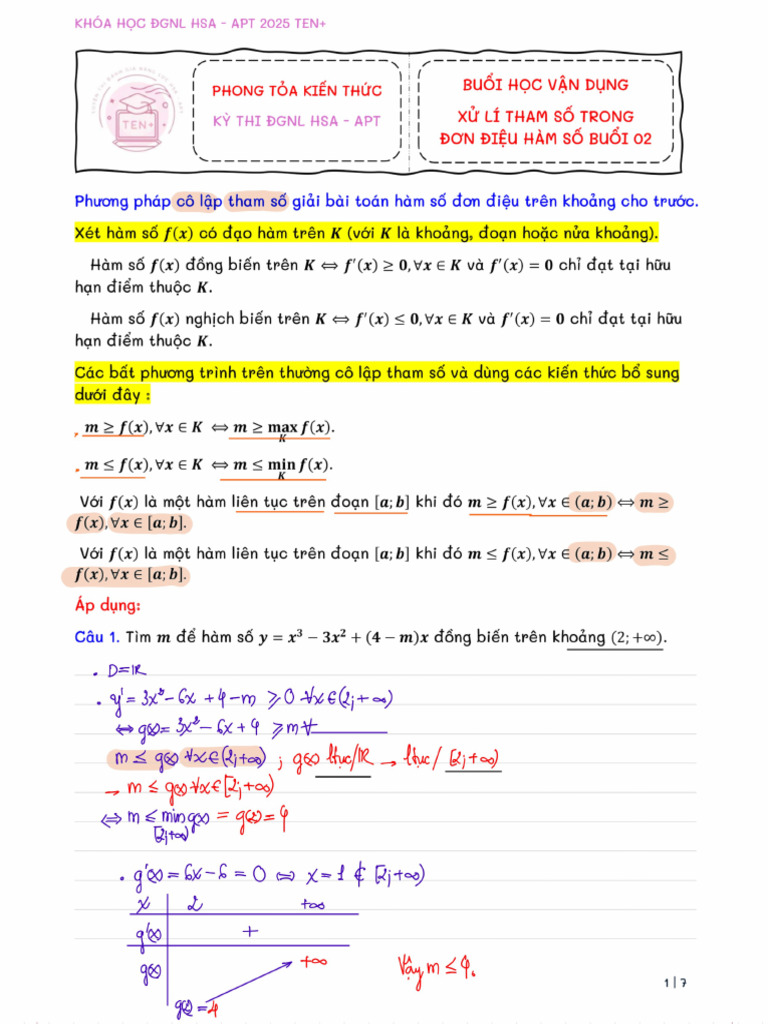 KHÓA HỌC ĐGNL HSA - APT 2025 TEN+
TEN+
PHONG TỎA KIẾN THỨC
KỲ THI ĐGNL HSA - APT
BUỔI HỌC VẬN DỤNG
XỬ LÍ THAM SỐ TRONG
ĐƠN ĐIỆU HÀM SỐ BUỔI 02
Phương pháp cô lập tham số giải bài toán hàm số đơn điệu trên khoảng cho trước.
Xét hàm số f(x) có đạo hàm trên K (với K là khoảng, đoạn hoặc nửa khoảng).
Hàm số f(x) đồng biến trên K ⟺ f′(x) ≥ 0, ∀x ∈ K và f′(x) = 0 chỉ đạt tại hữu
hạn điểm thuộc K.
Hàm số f(x) nghịch biến trên K ⟺ f′(x) ≤ 0, ∀x ∈ K và f′(x) = 0 chỉ đạt tại hữu
hạn điểm thuộc K.
Các bất phương trình trên thường cô lập tham số và dùng các kiến thức bổ sung
dưới đây :
m ≥ f(x), ∀x ∈ K ⟺ m ≥ max f(x).
K
m ≤ f(x), ∀x ∈ K ⟺ m ≤ min f(x).
K
Với f(x) là một hàm liên tục trên đoạn [a; b] khi đó m ≥ f(x), ∀x ∈ (a; b) ⟺ m ≥
f(x), ∀x ∈ [a; b].
Với f(x) là một hàm liên tục trên đoạn [a; b] khi đó m ≤ f(x), ∀x ∈ (a; b) ⟺ m ≤
f(x), ∀x ∈ [a; b].
Áp dụng:
Câu 1. Tìm m để hàm số y = x³ − 3x² + (4 − m)x đồng biến trên khoảng (2; +∞).
• D = ℝ
• y' = 3x² − 6x + 4 − m ≥ 0 ∀x ∈ (2; +∞)
⟺ g(x) = 3x² − 6x + 4 ≥ m ∀
m ≤ g(x) ∀x ∈ (2; +∞) ; g(x) ltục/ℝ → ltục/ [2; +∞)
→ m ≤ g(x) ∀x ∈ [2; +∞)
⟺ m ≤ min g(x) = g(2) = 4
[2; +∞)
• g'(x) = 6x − 6 = 0 ⟺ x = 1 ∉ [2; +∞)
x 2 +∞
g'(x) +
g(x) +∞
g(2) = 4
Vậy m ≤ 4.
1 | 7